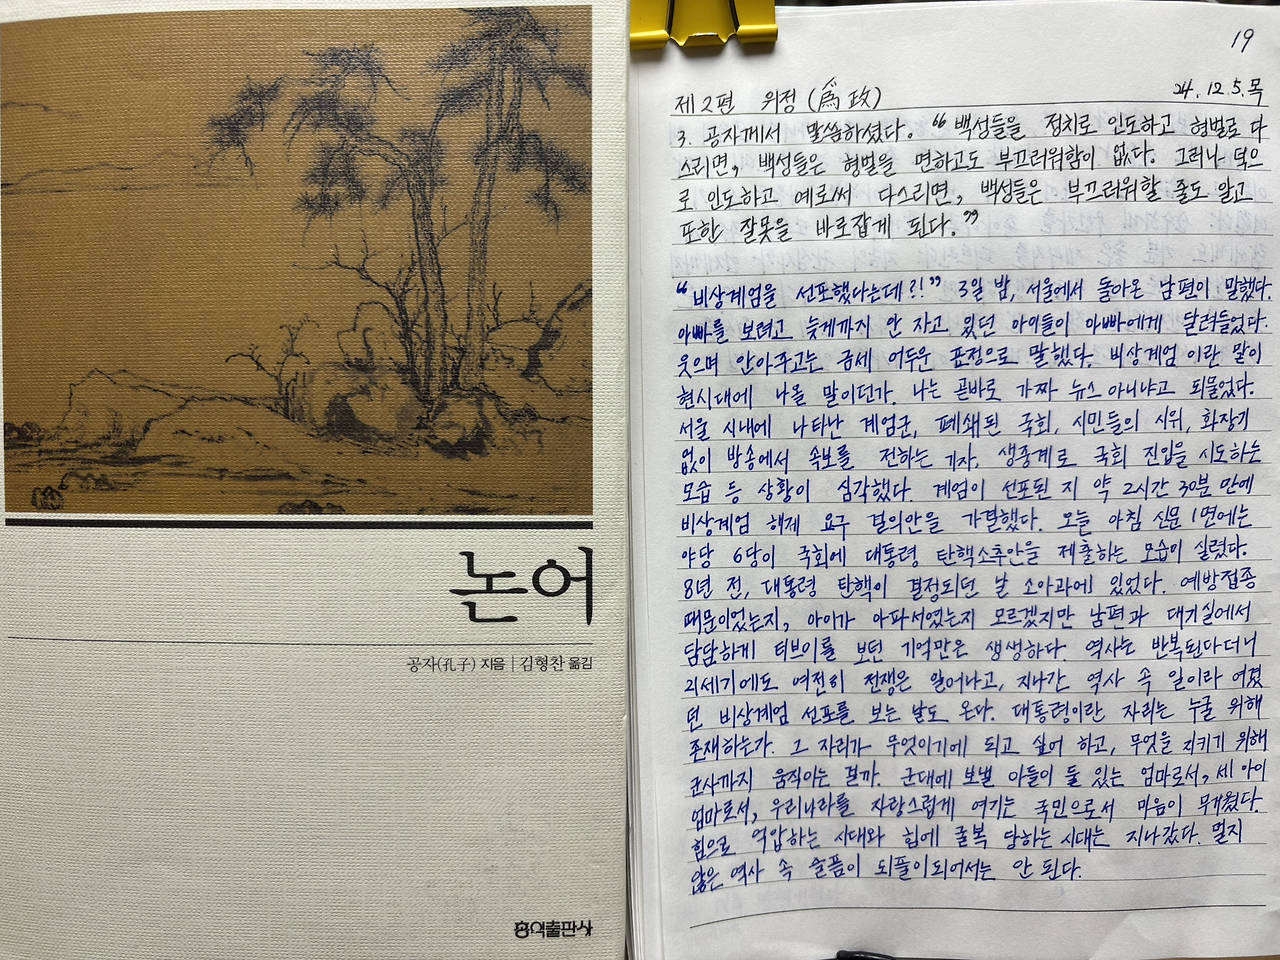 논어
공자(孔子) 지음 | 김형찬 옮김
홍익출판사
19
제2편 위정(爲政) 24.12.5.목
3. 공자께서 말씀하셨다. "백성들을 정치로 인도하고 형벌로 다
스리면, 백성들은 형벌을 면하고도 부끄러워함이 없다. 그러나 덕으
로 인도하고 예로써 다스리면, 백성들은 부끄러워할 줄도 알고
또한 잘못을 바로잡게 된다."
"비상계엄을 선포했다는데?!" 3일 밤, 서울에서 돌아온 남편이 말했다.
아빠를 보려고 늦게까지 안 자고 있던 아이들이 아빠에게 달려들었다.
웃으며 안아주고는 금세 어두운 표정으로 말했다. 비상계엄이란 말이
현시대에 나올 말이던가. 나는 곧바로 가짜 뉴스 아니냐고 되물었다.
서울 시내에 나타난 계엄군, 폐쇄된 국회, 시민들의 시위, 화장기
없이 방송에서 속보를 전하는 기자, 생중계로 국회 진입을 시도하는
모습 등 상황이 심각했다. 계엄이 선포된 지 약 2시간 30분 만에
비상계엄 해제 요구 결의안을 가결했다. 오늘 아침 신문 1면에는
야당 6당이 국회에 대통령 탄핵소추안을 제출하는 모습이 실렸다.
8년 전, 대통령 탄핵이 결정되던 날 소아과에 있었다. 예방접종
때문이었는지, 아이가 아파서였는지 모르겠지만 남편과 대기실에서
담담하게 티브이를 보던 기억만은 생생하다. 역사는 반복된다더니
21세기에도 여전히 전쟁은 일어나고, 지나간 역사 속 일이라 여겼
던 비상계엄 선포를 보는 날도 온다. 대통령이란 자리는 누굴 위해
존재하는가. 그 자리가 무엇이기에 되고 싶어 하고, 무엇을 지키기 위해
군사까지 움직이는 걸까. 군대에 보낼 아들이 둘 있는 엄마로서, 세 아이
엄마로서, 우리나라를 자랑스럽게 여기는 국민으로서 마음이 무거웠다.
힘으로 억압하는 시대와 힘에 굴복 당하는 시대는 지나갔다. 멀지
않은 역사 속 슬픔이 되풀이되어서는 안 된다.